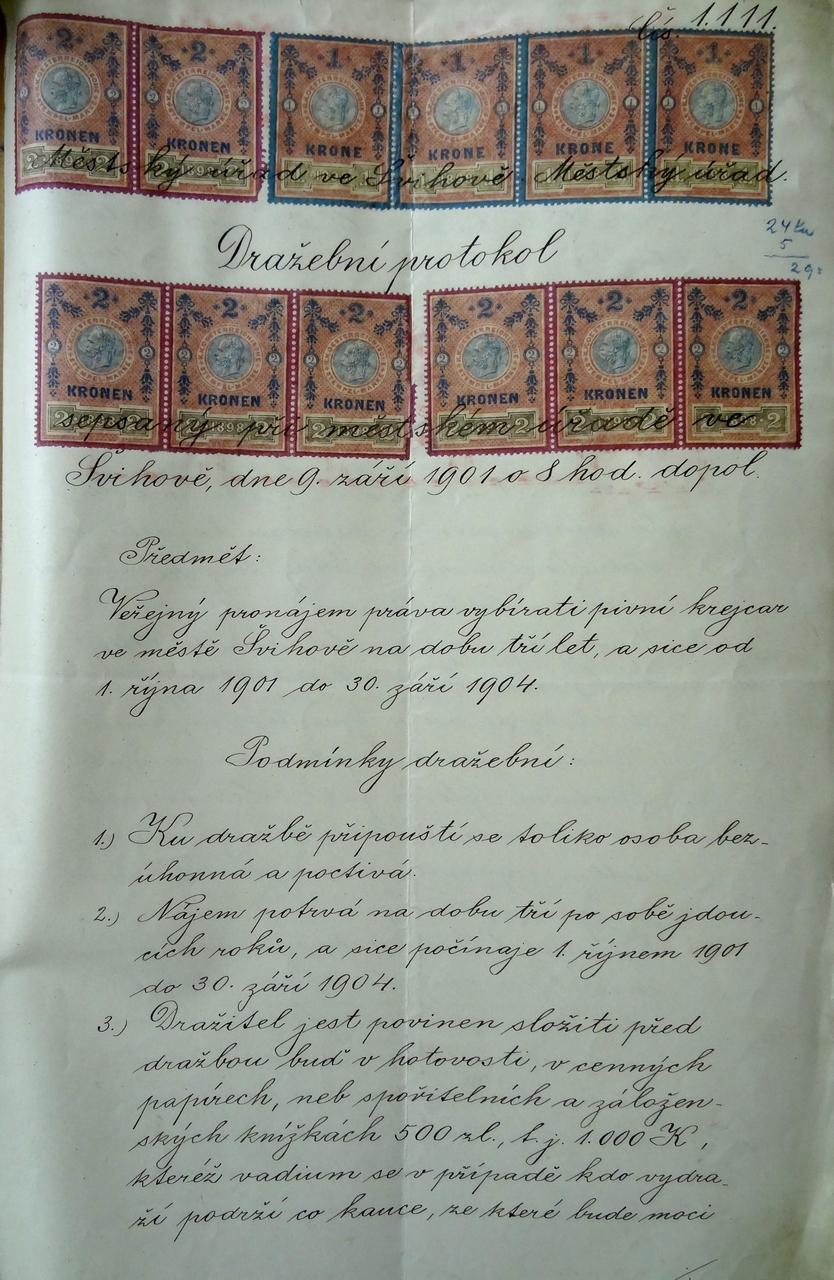 čís. 1.111.
2 2 1 1 1 1
KRONEN KRONEN KRONE KRONE KRONE KRONE
Městský úřad ve Švihově. Městský úřad.
24 kn
5
29:
Dražební protokol
2 2 2 2 2 2
KRONEN KRONEN KRONEN KRONEN KRONEN KRONEN
sepsaný při městském úřadě ve
Švihově, dne 9. září 1901 o 8 hod. dopol.
Předmět:
Veřejný pronájem práva vybírati pivní krejcar
ve městě Švihově na dobu tří let, a sice od
1. října 1901 do 30. září 1904.
Podmínky dražební:
1.) Ku dražbě připouští se toliko osoba bez-
úhonná a poctivá.
2.) Nájem potrvá na dobu tří po sobě jdou-
cích roků, a sice počínaje 1. říjnem 1901
do 30. září 1904.
3.) Dražitel jest povinen složiti před
dražbou buď v hotovosti, v cenných
papírech, neb spořitelních a záložen-
ských knížkách 500 zl., t. j. 1.000 K,
kteréž vadium se v případě kdo vydra-
ží podrží co kauce, ze které bude moci